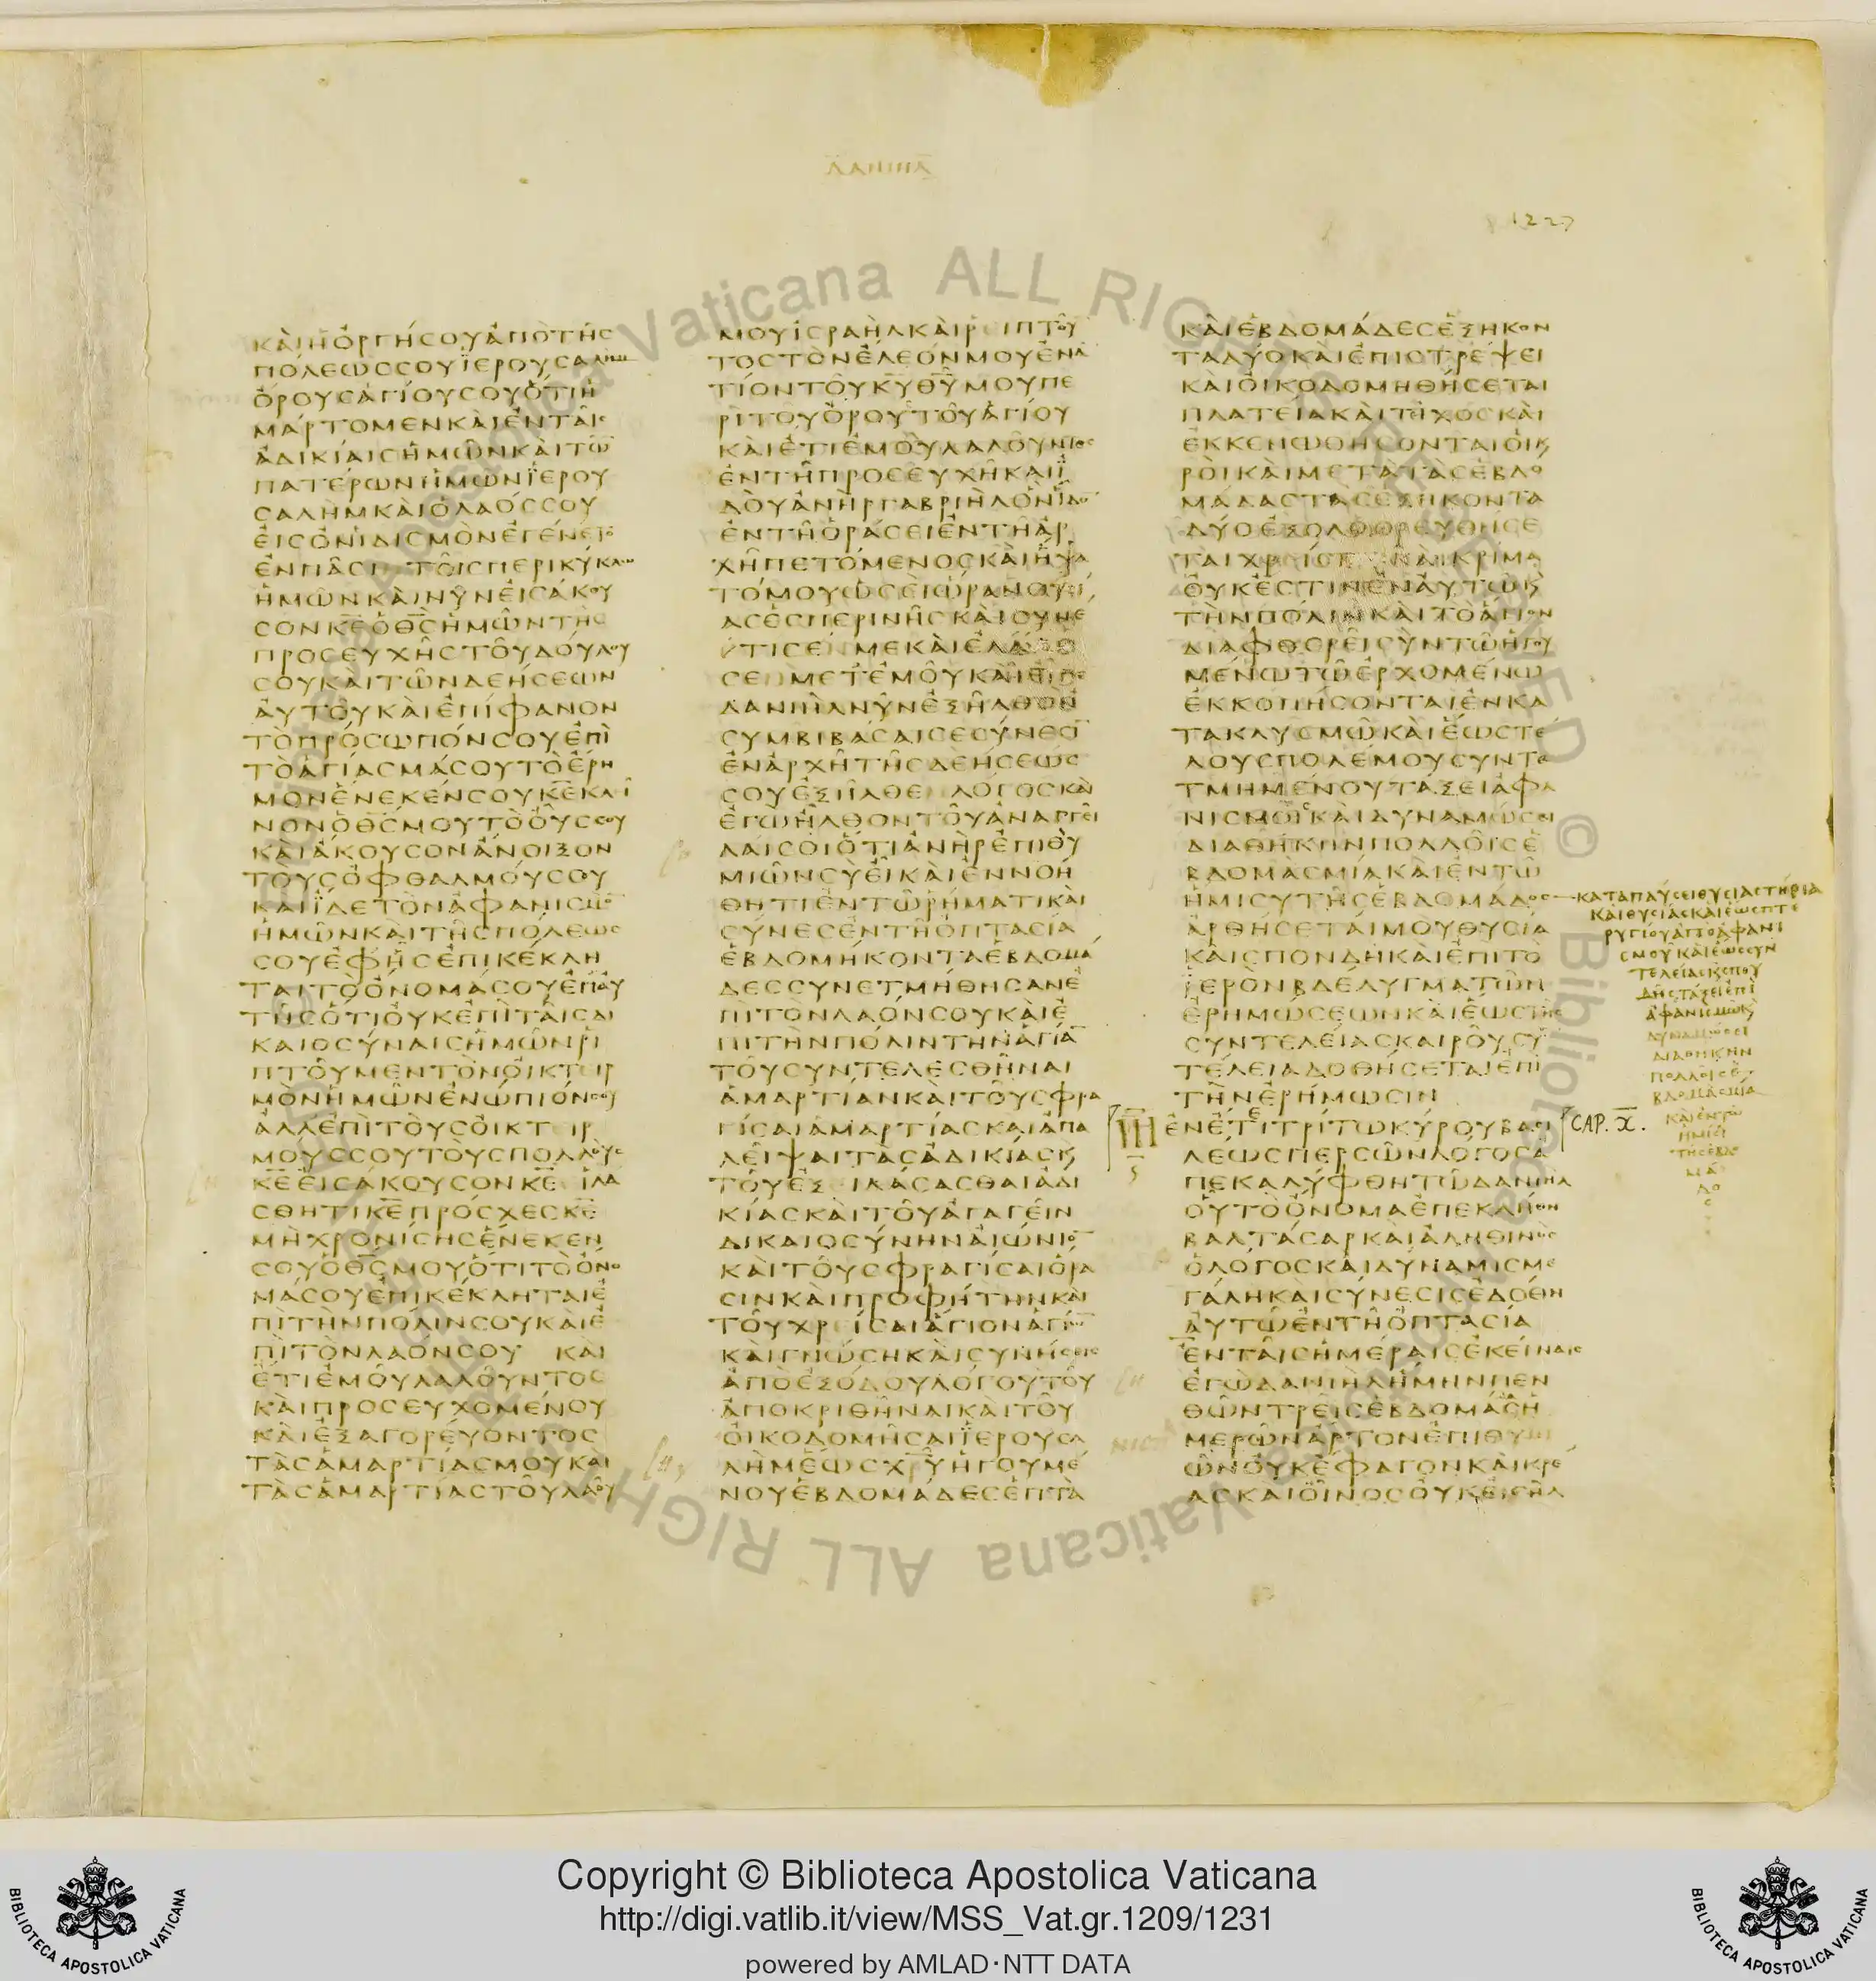 ΔΑΝΙΗΛ
1227
ΚΑΙΗΟΡΓΗΣΟΥΑΠΟΤΗΣ
ΠΟΛΕΩΣΣΟΥΙΕΡΟΥΣΑΛΗΜ
ΟΡΟΥΣΑΓΙΟΥΣΟΥΟΤΙΗ
ΜΑΡΤΟΜΕΝΚΑΙΕΝΤΑΙΣ
ΑΔΙΚΙΑΙΣΗΜΩΝΚΑΙΤΩ
ΠΑΤΕΡΩΝΗΜΩΝΙΕΡΟΥ
ΣΑΛΗΜΚΑΙΟΛΑΟΣΣΟΥ
ΕΙΣΟΝΙΔΙΣΜΟΝΕΓΕΝΕΤΟ
ΕΝΠΑΣΙΤΟΙΣΠΕΡΙΚΥΚΛΩ
ΗΜΩΝΚΑΙΝΥΝΕΙΣΑΚΟΥ
ΣΟΝΚΕΟΘΣΗΜΩΝΤΗΣ
ΠΡΟΣΕΥΧΗΣΤΟΥΔΟΥΛΟΥ
ΣΟΥΚΑΙΤΩΝΔΕΗΣΕΩΝ
ΑΥΤΟΥΚΑΙΕΠΙΦΑΝΟΝ
ΤΟΠΡΟΣΩΠΟΝΣΟΥΕΠΙ
ΤΟΑΓΙΑΣΜΑΣΟΥΤΟΕΡΗ
ΜΟΝΕΝΕΚΕΝΣΟΥΚΕΚΛΙ
ΝΟΝΟΘΣΜΟΥΤΟΟΥΣΣΟΥ
ΚΑΙΑΚΟΥΣΟΝΑΝΟΙΞΟΝ
ΤΟΥΣΟΦΘΑΛΜΟΥΣΣΟΥ
ΚΑΙΙΔΕΤΟΝΑΦΑΝΙΣΜΟ
ΗΜΩΝΚΑΙΤΗΣΠΟΛΕΩΣ
ΣΟΥΕΦΗΣΕΠΙΚΕΚΛΗ
ΤΑΙΤΟΟΝΟΜΑΣΟΥΕΠΑΥ
ΤΗΣΟΤΙΟΥΚΕΠΙΤΑΙΣΔΙ
ΚΑΙΟΣΥΝΑΙΣΗΜΩΝΡΙ
ΠΤΟΥΜΕΝΤΟΝΟΙΚΤΕΙΡ
ΜΟΝΗΜΩΝΕΝΩΠΙΟΝΣΟΥ
ΑΛΛΕΠΙΤΟΥΣΟΙΚΤΕΙΡ
ΜΟΥΣΣΟΥΤΟΥΣΠΟΛΛΟΥΣ
ΚΕΕΙΣΑΚΟΥΣΟΝΚΕΙΛΑ
ΣΘΗΤΙΚΕΠΡΟΣΧΕΣΚΕ
ΜΗΧΡΟΝΙΣΗΣΕΝΕΚΕΝ
ΣΟΥΟΘΣΜΟΥΟΤΙΤΟΟΝΟ
ΜΑΣΟΥΕΠΙΚΕΚΛΗΤΑΙΕ
ΠΙΤΗΝΠΟΛΙΝΣΟΥΚΑΙΕ
ΠΙΤΟΝΛΑΟΝΣΟΥ ΚΑΙ
ΕΤΙΕΜΟΥΛΑΛΟΥΝΤΟΣ
ΚΑΙΠΡΟΣΕΥΧΟΜΕΝΟΥ
ΚΑΙΕΞΑΓΟΡΕΥΟΝΤΟΣ
ΤΑΣΑΜΑΡΤΙΑΣΜΟΥΚΑΙ
ΤΑΣΑΜΑΡΤΙΑΣΤΟΥΛΑΟΥ
ΜΟΥΙΣΡΑΗΛΚΑΙΡΕΙΠΤΟΥ
ΤΟΣΤΟΝΕΛΕΟΝΜΟΥΕΝΑ
ΤΙΟΝΤΟΥΚΥΘΥΜΟΥΠΕ
ΡΙΤΟΥΟΡΟΥΣΤΟΥΑΓΙΟΥ
ΚΑΙΕΤΙΕΜΟΥΛΑΛΟΥΝΤΟΣ
ΕΝΤΗΠΡΟΣΕΥΧΗΚΑΙΙ
ΔΟΥΑΝΗΡΓΑΒΡΙΗΛΟΝΙΔΟ
ΕΝΤΗΟΡΑΣΕΙΕΝΤΗΑΡ
ΧΗΠΕΤΟΜΕΝΟΣΚΑΙΗΨΑ
ΤΟΜΟΥΩΣΕΙΩΡΑΝΘΥΣΙ
ΑΣΕΣΠΕΡΙΝΗΣΚΑΙΣΥΝΕ
ΤΙΣΕΝΜΕΚΑΙΕΛΑΛΗ
ΣΕΝΜΕΤΕΜΟΥΚΑΙΕΙΠΕ
ΔΑΝΙΗΛΝΥΝΕΞΗΛΘΟΝ
ΣΥΜΒΙΒΑΣΑΙΣΕΣΥΝΕΣΙ
ΕΝΑΡΧΗΤΗΣΔΕΗΣΕΩΣ
ΣΟΥΕΞΗΛΘΕΛΟΓΟΣΚΑΙ
ΕΓΩΗΛΘΟΝΤΟΥΑΝΑΓΓΕΙ
ΛΑΙΣΟΙΟΤΙΑΝΗΡΕΠΙΘΥ
ΜΙΩΝΣΥΕΙΚΑΙΕΝΝΟΗ
ΘΗΤΙΕΝΤΩΡΗΜΑΤΙΚΑΙ
ΣΥΝΕΣΕΝΤΗΟΠΤΑΣΙΑ
ΕΒΔΟΜΗΚΟΝΤΑΕΒΔΟΜΑ
ΔΕΣΣΥΝΕΤΜΗΘΗΣΑΝΕ
ΠΙΤΟΝΛΑΟΝΣΟΥΚΑΙΕ
ΠΙΤΗΝΠΟΛΙΝΤΗΝΑΓΙΑ
ΤΟΥΣΥΝΤΕΛΕΣΘΗΝΑΙ
ΑΜΑΡΤΙΑΝΚΑΙΤΟΥΣΦΡΑ
ΓΙΣΑΙΑΜΑΡΤΙΑΣΚΑΙΑΠΑ
ΛΕΙΨΑΙΤΑΣΑΔΙΚΙΑΣΚ
ΤΟΥΕΞΙΛΑΣΑΣΘΑΙΑΔΙ
ΚΙΑΣΚΑΙΤΟΥΑΓΑΓΕΙΝ
ΔΙΚΑΙΟΣΥΝΗΝΑΙΩΝΙΟ
ΚΑΙΤΟΥΣΦΡΑΓΙΣΑΙΟΡΑ
ΣΙΝΚΑΙΠΡΟΦΗΤΗΝΚΑΙ
ΤΟΥΧΡΙΣΑΙΑΓΙΟΝΑΓΙΩ
ΚΑΙΓΝΩΣΗΚΑΙΣΥΝΗΣΕΙΣ
ΑΠΟΕΞΟΔΟΥΛΟΓΟΥΤΟΥ
ΑΠΟΚΡΙΘΗΝΑΙΚΑΙΤΟΥ
ΟΙΚΟΔΟΜΗΣΑΙΙΕΡΟΥΣΑ
ΛΗΜΕΩΣΧΡΥΗΓΟΥΜΕ
ΝΟΥΕΒΔΟΜΑΔΕΣΕΠΤΑ
ΚΑΙΕΒΔΟΜΑΔΕΣΕΞΗΚΟΝ
ΤΑΔΥΟΚΑΙΕΠΙΣΤΡΕΨΕΙ
ΚΑΙΟΙΚΟΔΟΜΗΘΗΣΕΤΑΙ
ΠΛΑΤΕΙΑΚΑΙΤΙΧΟΣΚΑΙ
ΕΚΚΕΝΩΘΗΣΟΝΤΑΙΟΙΚ
ΡΟΙΚΑΙΜΕΤΑΤΑΣΕΒΔΟ
ΜΑΔΑΣΤΑΣΕΞΗΚΟΝΤΑ
ΔΥΟΕΞΟΛΕΘΡΕΥΘΗΣΕ
ΤΑΙΧΡΙΣΜΑΚΑΙΚΡΙΜΑ
ΟΥΚΕΣΤΙΝΕΝΑΥΤΩΚ
ΤΗΝΠΟΛΙΝΚΑΙΤΟΑΓΙΟΝ
ΔΙΑΦΘΕΡΕΙΣΥΝΤΩΗΓΟΥ
ΜΕΝΩΤΩΕΡΧΟΜΕΝΩ
ΕΚΚΟΠΗΣΟΝΤΑΙΕΝΚΑ
ΤΑΚΛΥΣΜΩΚΑΙΕΩΣΤΕ
ΛΟΥΣΠΟΛΕΜΟΥΣΥΝΤΕ
ΤΜΗΜΕΝΟΥΤΑΞΕΙΑΦΑ
ΝΙΣΜΟΙΣΚΑΙΔΥΝΑΜΩΣΕΙ
ΔΙΑΘΗΚΗΝΠΟΛΛΟΙΣΕ
ΒΔΟΜΑΣΜΙΑΚΑΙΕΝΤΩ
ΗΜΙΣΥΤΗΣΕΒΔΟΜΑΔΟΣ
ΑΡΘΗΣΕΤΑΙΜΟΥΘΥΣΙΑ
ΚΑΙΣΠΟΝΔΗΚΑΙΕΠΙΤΟ
ΙΕΡΟΝΒΔΕΛΥΓΜΑΤΩΝ
ΕΡΗΜΩΣΕΩΝΚΑΙΕΩΣΤΗΣ
ΣΥΝΤΕΛΕΙΑΣΚΑΙΡΟΥΣΥ
ΤΕΛΕΙΑΔΟΘΗΣΕΤΑΙΕΠΙ
ΤΗΝΕΡΗΜΩΣΙΝ
ΕΝΕΤΕΙΤΡΙΤΩΚΥΡΟΥΒΑΣΙ
CAP. X.
ΛΕΩΣΠΕΡΣΩΝΛΟΓΟΣΑ
ΠΕΚΑΛΥΦΘΗΤΩΔΑΝΙΗΛ
ΟΥΤΟΟΝΟΜΑΕΠΕΚΛΗΘΗ
ΒΑΛΤΑΣΑΡΚΑΙΑΛΗΘΙΝΟΣ
ΟΛΟΓΟΣΚΑΙΔΥΝΑΜΙΣΜΕ
ΓΑΛΗΚΑΙΣΥΝΕΣΙΣΕΔΟΘΗ
ΑΥΤΩΕΝΤΗΟΠΤΑΣΙΑ
ΕΝΤΑΙΣΗΜΕΡΑΙΣΕΚΕΙΝΑΙΣ
ΕΓΩΔΑΝΙΗΛΗΜΗΝΠΕΝ
ΘΩΝΤΡΕΙΣΕΒΔΟΜΑΣΗ
ΜΕΡΩΝΑΡΤΟΝΕΠΙΘΥΜΙ
ΩΝΟΥΚΕΦΑΓΟΝΚΑΙΚΡΕ
ΑΣΚΑΙΟΙΝΟΣΟΥΚΕΙΣΗΛ
ΚΑΤΑΠΑΥΣΕΙΘΥΣΙΑΣΤΗΡΙΑ
ΚΑΙΘΥΣΙΑΣΚΑΙΕΩΣΠΤΕ
ΡΥΓΙΟΥΑΠΟΑΦΑΝΙ
ΣΜΟΥΚΑΙΕΩΣΣΥΝ
ΤΕΛΕΙΑΣΚΣΠΟΥ
ΔΗΣΤΑΞΕΙΕΠΙ
ΑΦΑΝΙΣΜΩΚ
ΔΥΝΑΜΩΣΕΙ
ΔΙΑΘΗΚΗΝ
ΠΟΛΛΟΙΣΕ
ΒΔΟΜΑΣΜΙΑ
ΚΑΙΕΝΤΩ
ΗΜΙΣΙ
ΤΗΣΕΒΔΟ
ΜΑ
ΔΟ
Σ
Copyright © Biblioteca Apostolica Vaticana
http://digi.vatlib.it/view/MSS_Vat.gr.1209/1231
powered by AMLAD·NTT DATA
BIBLIOTECA APOSTOLICA VATICANA
BIBLIOTECA APOSTOLICA VATICANA